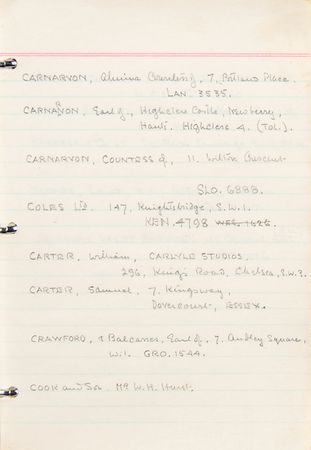 CARNARVON, Almina Countess of, 7, Portland Place.
LAN. 3535.
CARNARVON, Earl of, Highclere Castle, Newberry,
Hants. Highclere 4. (Tol.).
CARNARVON, COUNTESS of, 11. Wilton Crescent
SLO. 6888.
COLES Ltd. 147, Knightsbridge, S.W.1.
KEN. 4798 WES. 1626.
CARTER, William, CARLYLE STUDIOS
296, King's Road, Chelsea, S.W.3.
CARTER, Samuel, 7. Kingsway,
Dovercourt, ESSEX.
CRAWFORD, & Balcarres, Earl of, 7. Audley Square,
W.1. GRO. 1544.
COOK and Son Mr W. H. Hurst.